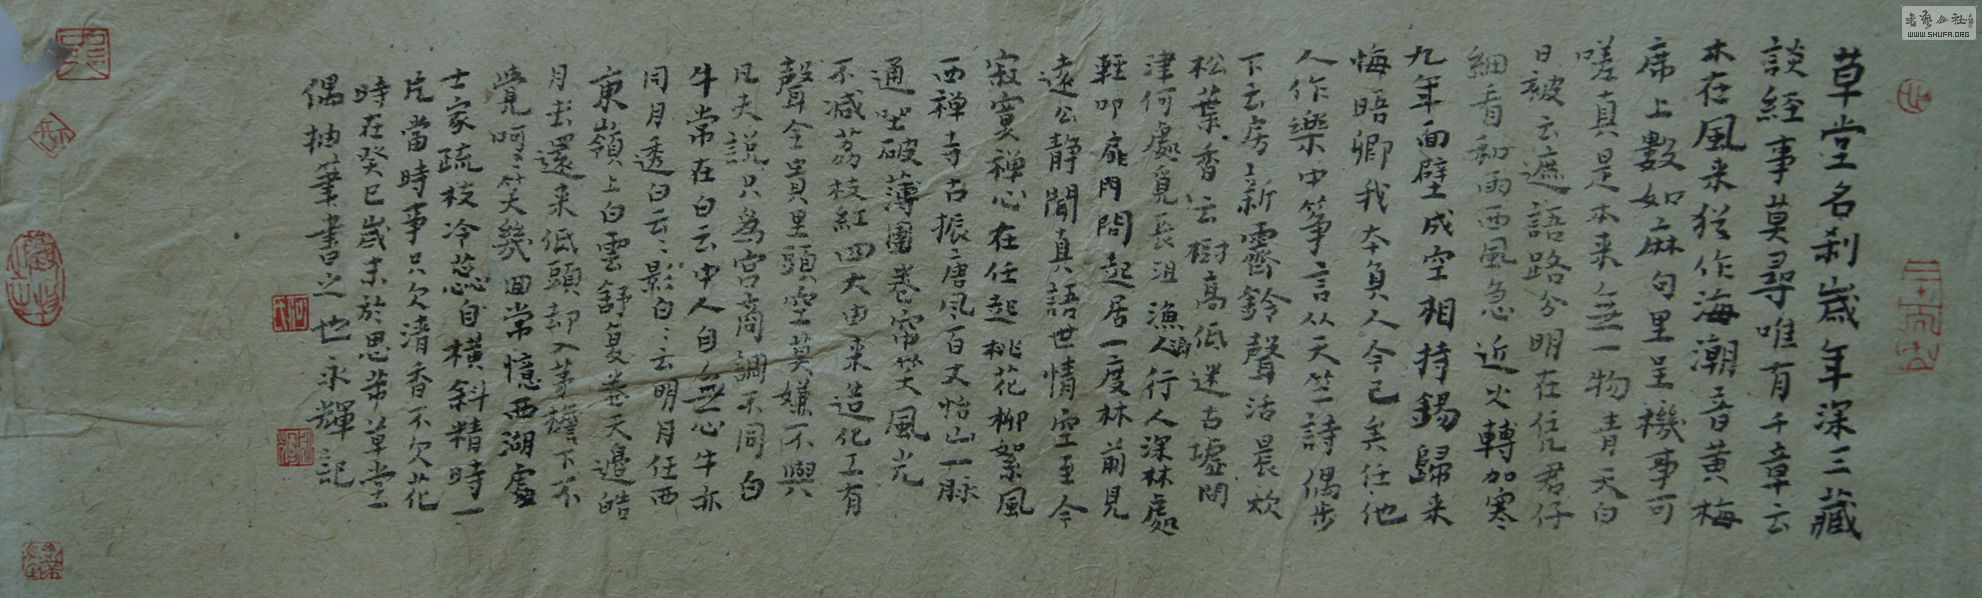 草堂名刹歲年深三藏
談經事莫尋唯有千章云
木在風来猶作海潮音黄梅
席上數如麻句里呈機事可
嗟真是本来無一物青天白
日被云遮語路分明在任君仔
細看和雨西風急近火轉加寒
九年面壁成空相持錫歸来
悔晤卿我本負人今已矣任他
人作樂中筝言从天竺詩偶步
下云房新霽鈴聲活晨炊
松葉香云樹高低迷古墟問
津何處覓長沮漁人行人深林處
輕叩扉門問起居一度林前見
遠公静聞真語世情空至今
寂寞禅心在任起桃花柳絮風
西禅寺古振唐风百丈怡山一脉
通坐破薄團卷帘笑風光
不减荔枝紅四大由来造化工有
聲全貴里頭空莫嫌不與
凡夫説只為宫商調不同白
牛常在白云中人自無心牛亦
同月透白云云影白白云明月任西
東嶺上白雲舒复卷天邊皓
月去還来低頭却入茅檐下不
覺呵呵笑幾回常憶西湖處
士家疏枝冷蕊自横斜精時一
片當時事只欠清香不欠花
時在癸巳歲末於思芾草堂
偶抽筆書之也永輝記
書藝公社
WWW.SHUFA.ORG